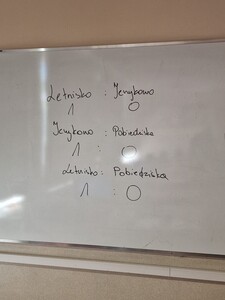 Letnisko : Jerykowo
1 0
Jerykowo : Pobiedziska
1 : 0
Letnisko : Pobiedziska
1 : 0